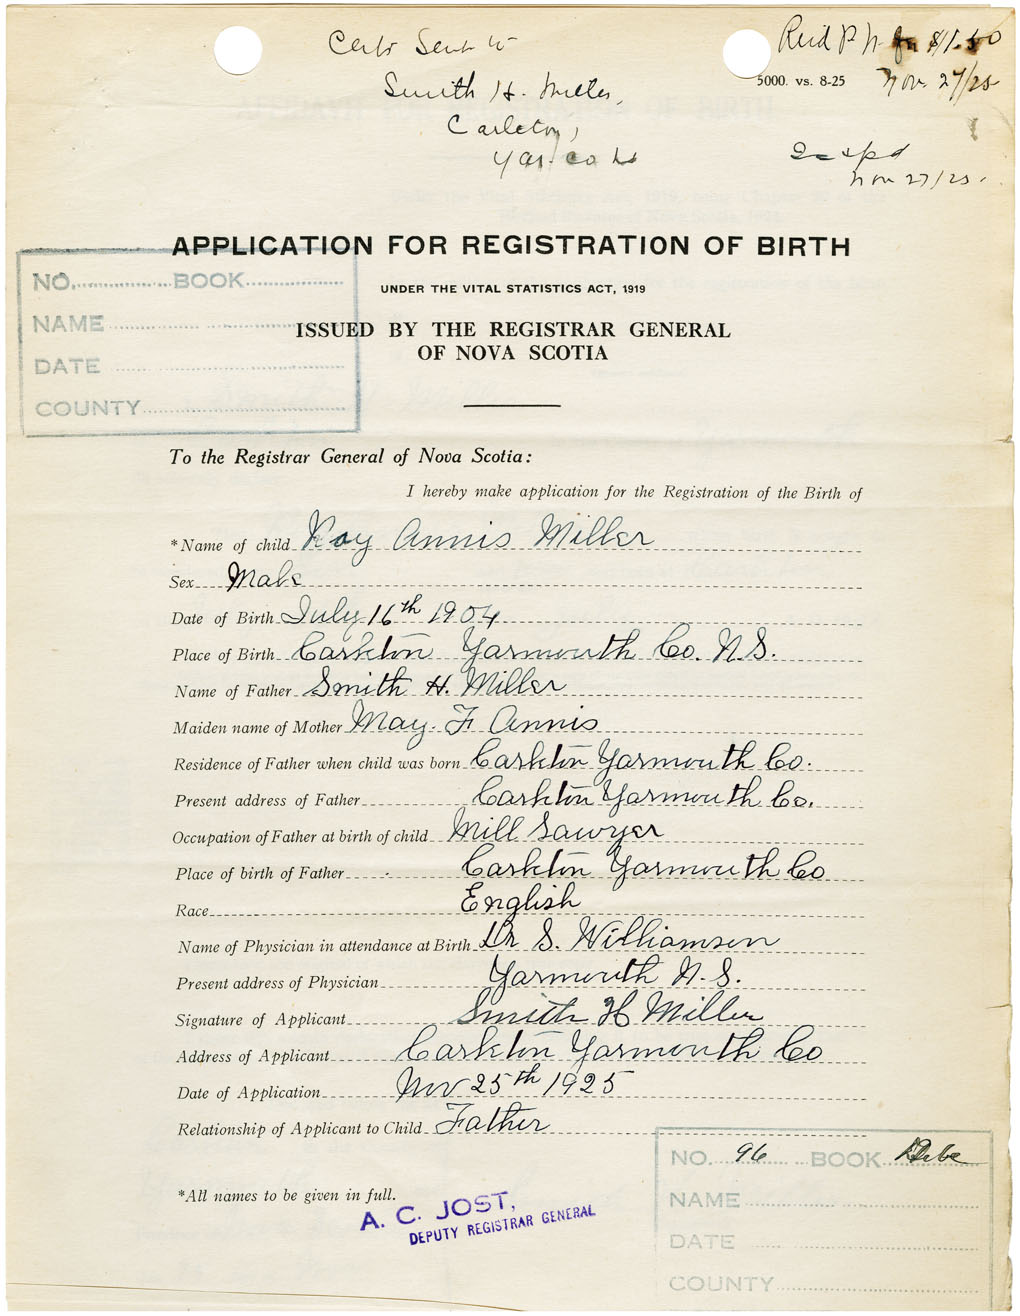 Certs Sent to
Smith H. Miller,
Carleton,
Yar. Co NS
Recd P.N. for $1.50
5000. vs. 8-25
Nov. 27/25
Nov 27/25.
APPLICATION FOR REGISTRATION OF BIRTH
UNDER THE VITAL STATISTICS ACT, 1919
ISSUED BY THE REGISTRAR GENERAL
OF NOVA SCOTIA
NO. BOOK
NAME
DATE
COUNTY
To the Registrar General of Nova Scotia:
I hereby make application for the Registration of the Birth of
*Name of child Ray Annis Miller
Sex Male
Date of Birth July 16th 1904
Place of Birth Carleton Yarmouth Co. N.S.
Name of Father Smith H. Miller
Maiden name of Mother May. F Annis
Residence of Father when child was born Carleton Yarmouth Co.
Present address of Father Carleton Yarmouth Co.
Occupation of Father at birth of child Mill Sawyer
Place of birth of Father Carleton Yarmouth Co
Race English
Name of Physician in attendance at Birth Dr S. Williamson
Present address of Physician Yarmouth N.S.
Signature of Applicant Smith H Miller
Address of Applicant Carleton Yarmouth Co
Date of Application Nov 25th 1925
Relationship of Applicant to Child Father
*All names to be given in full.
A. C. JOST,
DEPUTY REGISTRAR GENERAL
NO. 96 BOOK
NAME
DATE
COUNTY